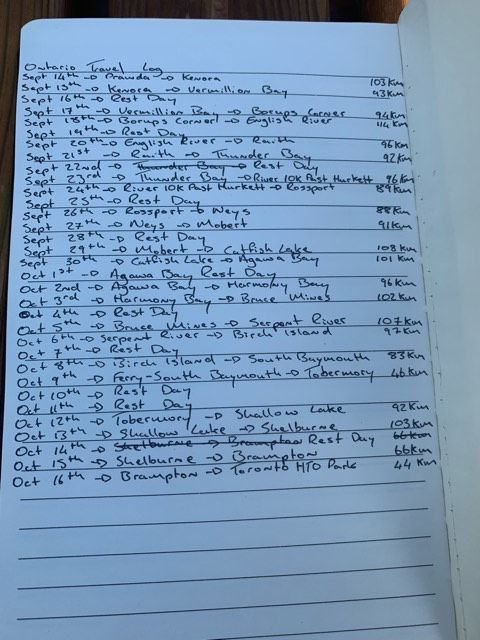 Ontario Travel Log
Sept 14th → Prawda → Kenora 103 Km
Sept 15th → Kenora → Vermillion Bay 93 Km
Sept 16th → Rest Day
Sept 17th → Vermillion Bay → Borups Corner 94 Km
Sept 18th → Borups Corner → English River 114 Km
Sept 19th → Rest Day
Sept 20th → English River → Raith 96 Km
Sept 21st → Raith → Thunder Bay 92 Km
Sept 22nd → Thunder Bay → Rest Day
Sept 23rd → Thunder Bay → River 10K Past Hurkett 96 Km
Sept 24th → River 10K Past Hurkett → Rossport 89 Km
Sept 25th → Rest Day
Sept 26th → Rossport → Neys 88 Km
Sept 27th → Neys → Mobert 91 Km
Sept 28th → Rest Day
Sept 29th → Mobert → Catfish Lake 108 Km
Sept 30th → Catfish Lake → Agawa Bay 101 Km
Oct 1st → Agawa Bay Rest Day
Oct 2nd → Agawa Bay → Harmony Bay 96 Km
Oct 3rd → Harmony Bay → Bruce Mines 102 Km
Oct 4th → Rest Day
Oct 5th → Bruce Mines → Serpent River 107 Km
Oct 6th → Serpent River → Birch Island 97 Km
Oct 7th → Rest Day
Oct 8th → Birch Island → South Baymouth 83 Km
Oct 9th → Ferry-South Baymouth → Tobermory 46 Km
Oct 10th → Rest Day
Oct 11th → Rest Day
Oct 12th → Tobermory → Shallow Lake 92 Km
Oct 13th → Shallow Lake → Shelburne 103 Km
Oct 14th → Shelburne → Brampton Rest Day 66 Km
Oct 15th → Shelburne → Brampton 66 Km
Oct 16th → Brampton → Toronto HTO Park 44 Km